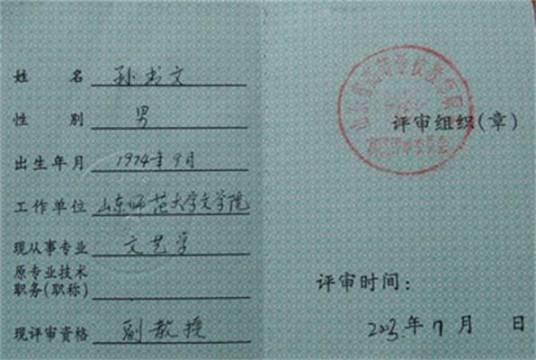 姓名 孙书文
性别 男
出生年月 1974年9月
工作单位 山东师范大学文学院
现从事专业 文艺学
原专业技术
职务(职称)
现评审资格 副教授
山东省高等学校
评审组织(章)
评审时间:
2003年7月 日